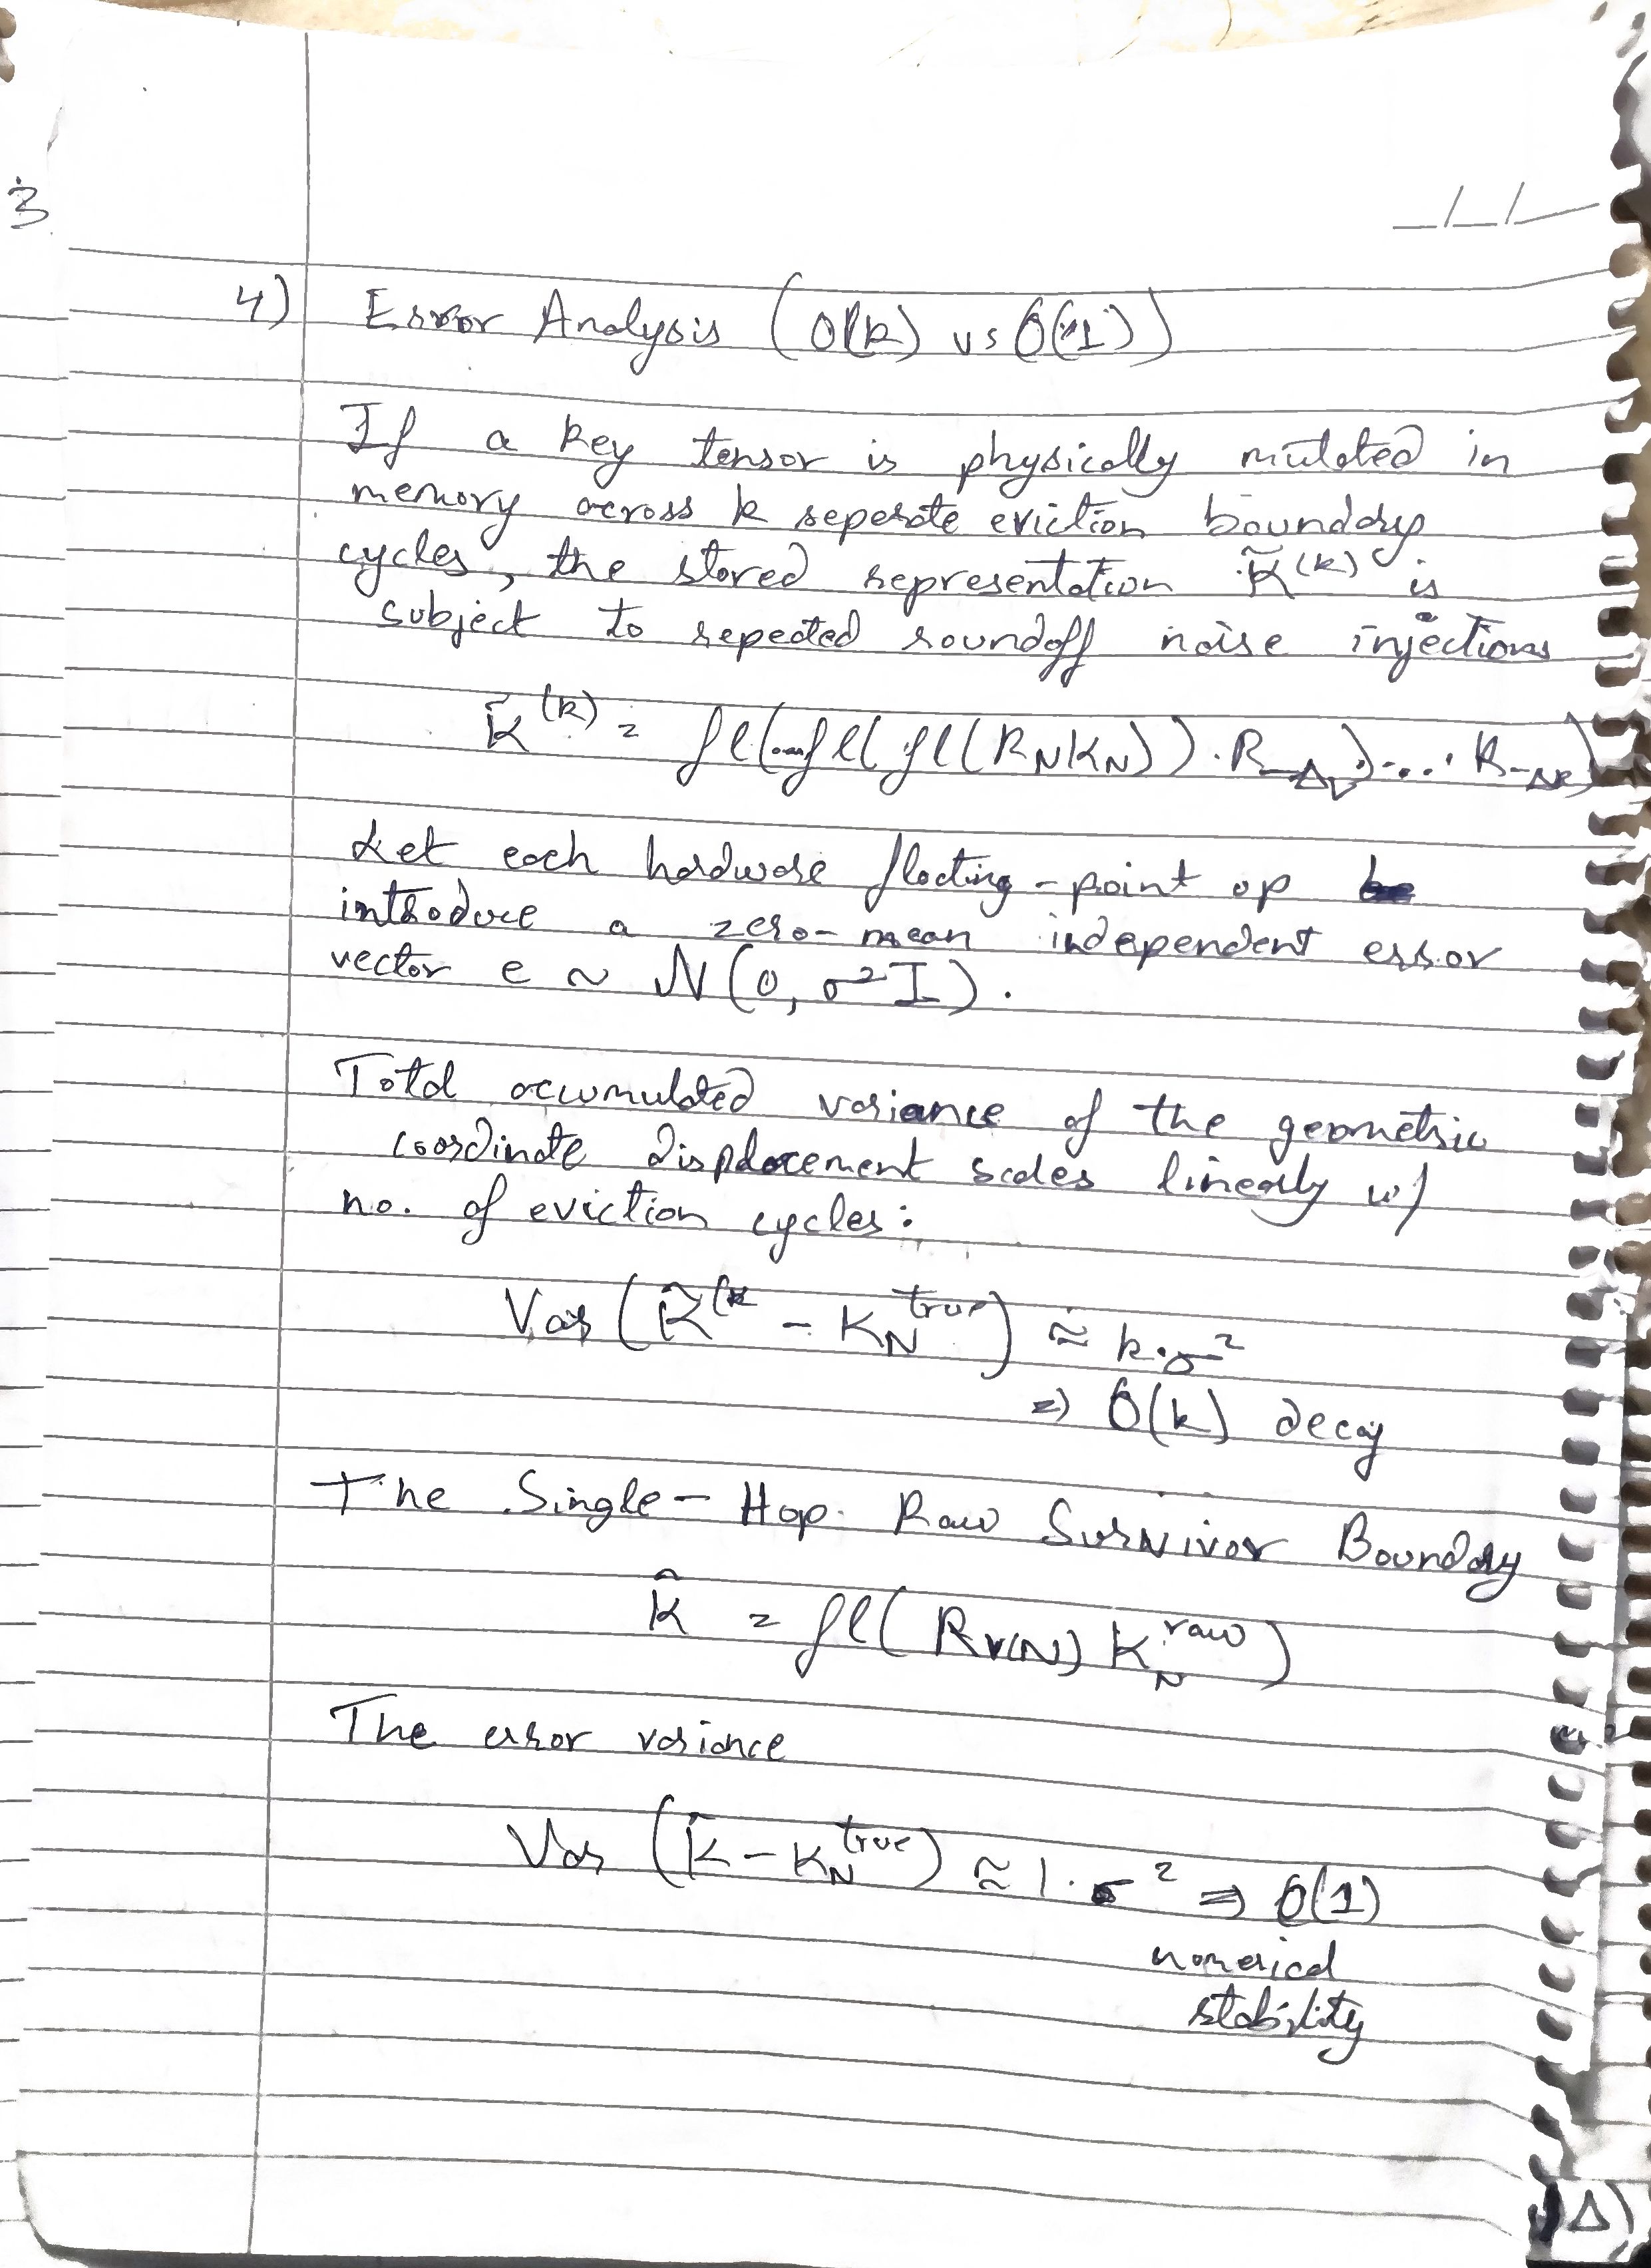 3
_/_/_
4) Error Analysis (O(k) vs O(1))
If a key tensor is physically mutated in
memory across k seperate eviction boundary
cycles, the stored representation K̃^(k) is
subject to repeated roundoff noise injections
K̃^(k) = fl(...fl(fl(R_N K_N)).R_-Δ₁)....R_-Δk)
Let each hardware floating-point op
introduce a zero-mean independent error
vector e ~ N(0, σ²I).
Total accumulated variance of the geometric
coordinate displacement scales linearly w/
no. of eviction cycles:
Var(K̃^(k - K_N^true) ≈ k.σ²
⇒ O(k) decay
The Single-Hop Raw Survivor Boundary
K̂ = fl(R_v(N) K_N^raw)
The error variance
Var(K̂ - K_N^true) ≈ 1.σ² ⇒ O(1)
numerical
stability
Δ)